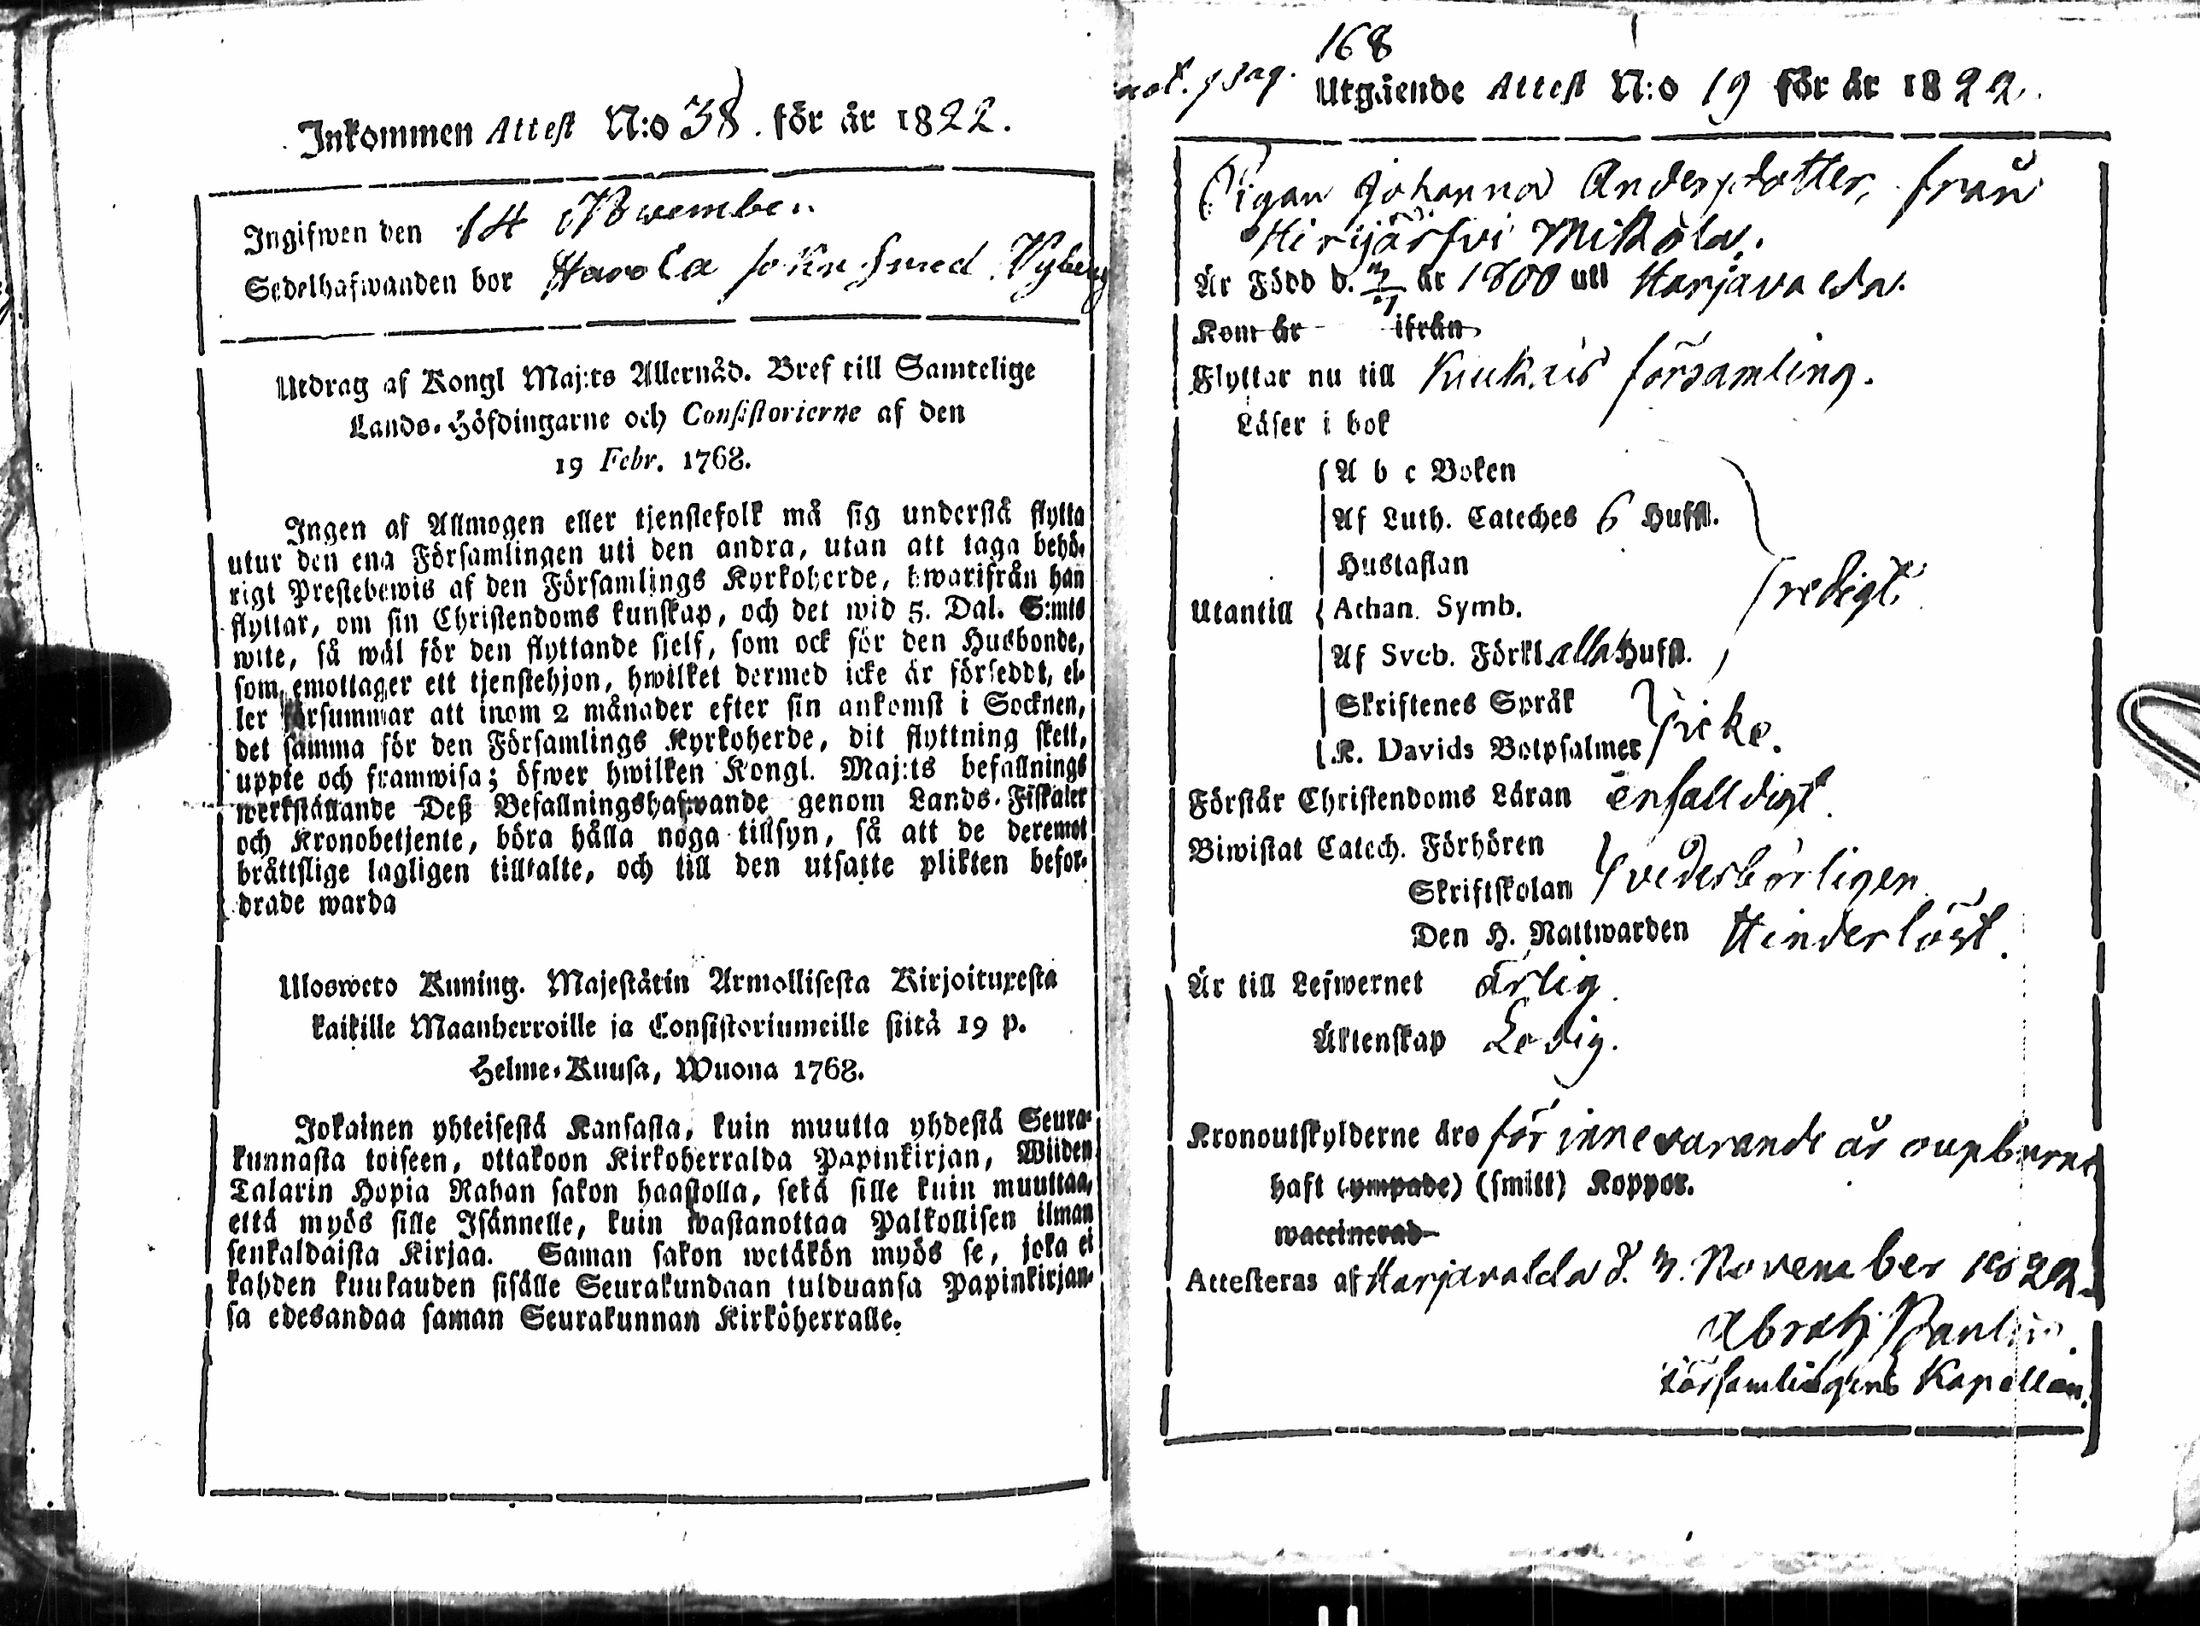 Inkommen Attest N:o 38. för år 1822.
Ingifwen den 14 November
Sedelhafwanden bor Harola sokn smed Nyberg
Utdrag af Kongl Maj:ts Allernåd. Bref till Samtelige
Lands-Höfdingarne och Consistorierne af den
19 Febr. 1768.
Ingen af Allmogen eller tjenstefolk må sig understå flytta
utur den ena Församlingen uti den andra, utan att taga behö-
rigt Prestebewis af den Församlings Kyrkoherde, hwarifrån han
flyttar, om sin Christendoms kunskap, och det wid 5. Dal. S:mts
wite, så wäl för den flyttande sjelf, som ock för den Husbonde,
som emottager ett tjenstehjon, hwilket dermed icke är förseddt, el-
ler försummar att inom 2 månader efter sin ankomst i Socknen,
det samma för den Församlings Kyrkoherde, dit flyttning skett,
uppte och framwisa; öfwer hwilken Kongl. Maj:ts befallnings
werkställande Deß Befallningshafwande genom Lands-Fiskaler
och Kronobetjente, böra hålla noga tillsyn, så att de deremot
bråttslige lagligen tilltalte, och till den utsatte plikten befor-
drade warda
Uloswеto Kuning. Majestätin Armollisesta Kirjoituxesta
kaikille Maanherroille ja Consistoriumeille siitä 19 p.
Helme-Kuusa, Wuona 1768.
Jokainen yhteisestä Kansasta, kuin muutta yhdestä Seura-
kunnasta toiseen, ottakoon Kirkoherralda Papinkirjan, Wiiden
Talarin Hopia Rahan sakon haastolla, sekä sille kuin muuttaa,
että myös sille Isännelle, kuin wastanottaa Palkollisen ilman
senkaldaista Kirjaa. Saman sakon wetäkön myös se, joka ei
kahden kuukauden sisälle Seurakundaan tulduansa Papinkirjan-
sa edesandaa saman Seurakunnan Kirköherralle.
168
not. pag. Utgående Attest N:o 19 för år 1822.
Pigan Johanna Andersdotter, från
Hirijärfvi Mikola.
Är Född d. 3/7 år 1800 uti Harjavalda.
Kom år ifrån
Flyttar nu till församling.
Läser i bok
A b c Boken
Af Luth. Cateches 6 Hufst.
Hustaflan
Utantill Athan. Symb. redigt.
Af Sveb. Förkl. alla Hufst.
Skriftenes Språk
K. Davids Botpsalmer icke.
Förstår Christendoms Läran enfalldigt.
Biwistat Catech. Förhören
Skriftskolan vederbörligen
Den H. Nattwarden Hinderlöst.
Är till Lefwernet ärlig.
Äktenskap Ledig.
Kronoutskylderne äro för innevarande år oupburne
haft (ympade) (smitt) Koppor.
waccinerad
Attesteras af Harjavalda d. 3. November 1822.
Abrah: Paulin.
Församlingens Kapellan.